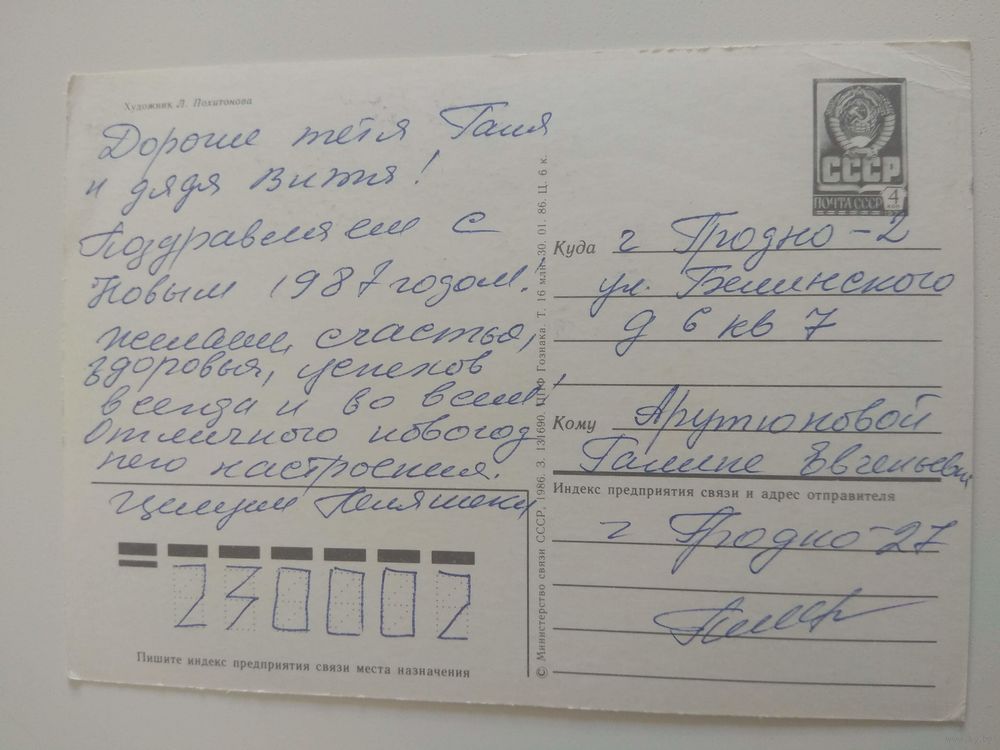 Художник Л. Похитонова
Дорогие тётя Галя
и дядя Витя!
Поздравляем с
Новым 1987 годом!
желаем счастья,
здоровья, успехов
всегда и во всём!
Отличного новогод
него настроения.
Целуем
230002
Пишите индекс предприятия связи места назначения
© Министерство связи СССР, 1986. З. 131690. ППФ Гознака. Т. 16 млн. 30. 01. 86. Ц. 6 к.
СССР
ПОЧТА СССР 4 коп
Куда г Гродно-2
ул. Белинского
д 6 кв 7
Кому Арутюновой
Галине Евгеньевн
Индекс предприятия связи и адрес отправителя
г Гродно-27